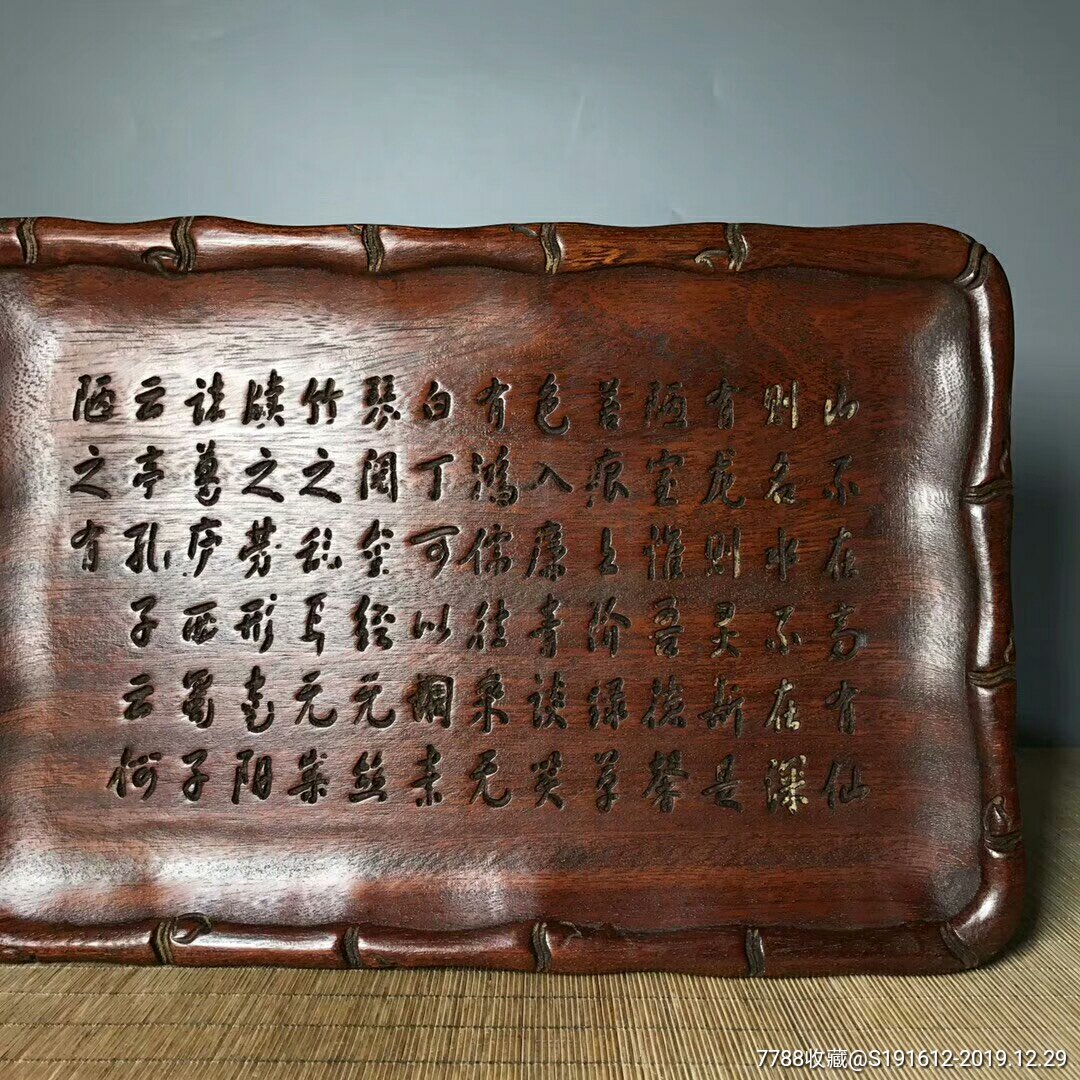 山不在高有仙
则名水不在深
有龙则灵斯是
陋室惟吾德馨
苔痕上阶绿草
色入廉青谈笑
有鸿儒往来无
白丁可以调素
琴阅金经无丝
竹之乱耳无案
牍之劳形南阳
诸葛庐西蜀子
云亭孔子云何
陋之有
7788收藏@S191612-2019.12.29